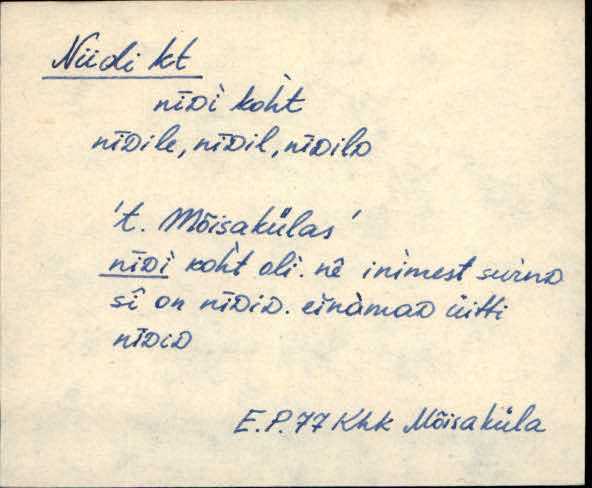 Niidi kt
nīᴅì koh̀t
nīᴅile, nīᴅil, nīᴅilᴅ
't. Mõisakülas'
nīᴅì koh̀t oli. nê inìmest suìnᴅ
sî on nīᴅiᴅ. eìnàmaᴅ üitti
nīᴅiᴅ
E.P.77 Khk Mõisaküla